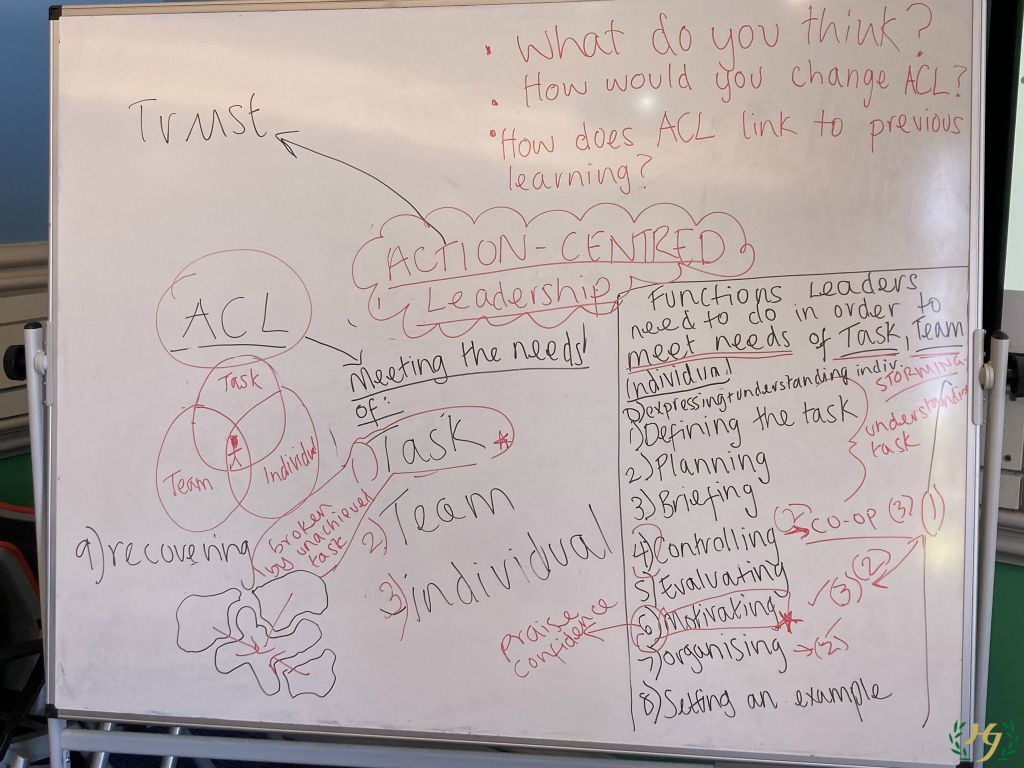 • What do you think?
• How would you change ACL?
• How does ACL link to previous
learning?
Trust
ACTION-CENTRED
Leadership
ACL
Meeting the needs
of:
1) Task
2) Team
3) individual
Task
Team
Individual
9) recovering
broken
by
unachieved
task
Functions Leaders
need to do in order to
meet needs of Task, Team
Individual
expressing + understanding indiv.
1) Defining the task
2) Planning
3) Briefing
4) Controlling
5) Evaluating
6) Motivating
7) organising
8) Setting an example
STORMING
understanding
task
co-op (3) (1)
(3) (2)
(2)
praise
confidence
HG